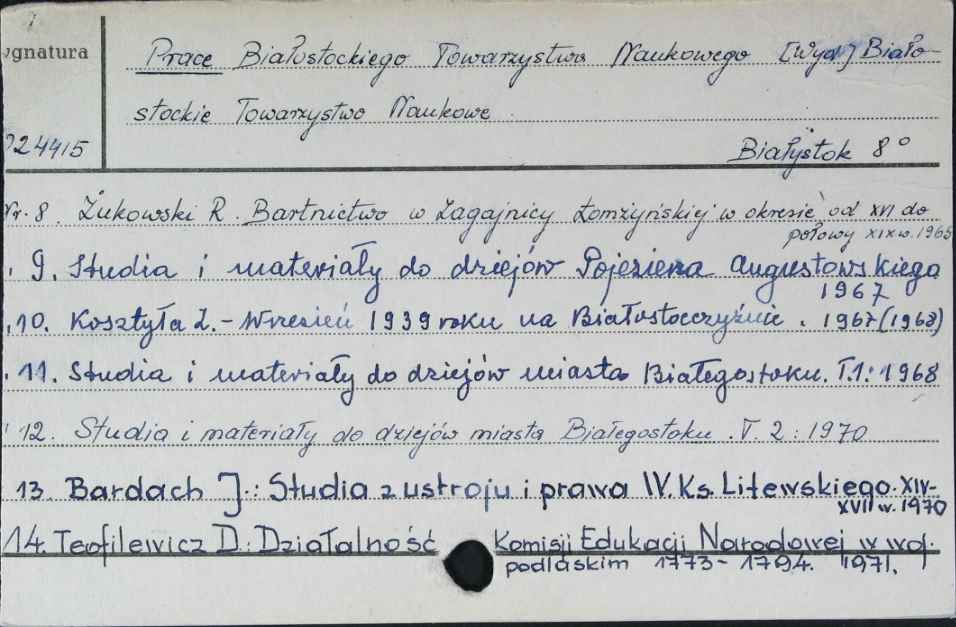 ygnatura
Prace Białostockiego Towarzystwa Naukowego [Wyd.] Biało-
stockie Towarzystwo Naukowe
24415
Białystok 8°
Nr. 8. Żukowski R. Bartnictwo w Zagajnicy Łomżyńskiej w okresie od XVI do
połowy XIX w. 1965
9. Studia i materiały do dziejów Pojezierza Augustowskiego
1967
10. Kosztyła Z. - Wrzesień 1939 roku na Białostocczyźnie. 1967 (1968)
11. Studia i materiały do dziejów miasta Białegostoku. T.1: 1968
12. Studia i materiały do dziejów miasta Białegostoku. T. 2: 1970
13. Bardach J.: Studia z ustroju i prawa W. Ks. Litewskiego XIV-
XVII w. 1970
14. Teofilewicz D.: Działalność Komisji Edukacji Narodowej w woj.
podlaskim 1773-1794. 1971.